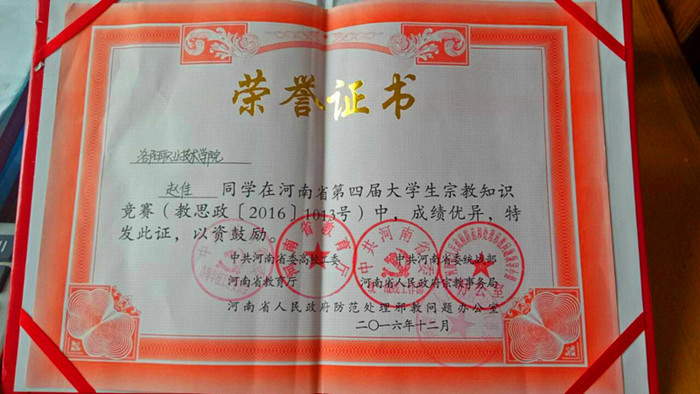 荣誉证书
洛阳职业技术学院
赵佳 同学在河南省第四届大学生宗教知识
竞赛（教思政［2016］1013号）中，成绩优异，特
发此证，以资鼓励。
中共河南省委高校工委 中共河南省委统战部
河南省教育厅 河南省人民政府宗教事务局
河南省人民政府防范处理邪教问题办公室
二〇一六年十二月